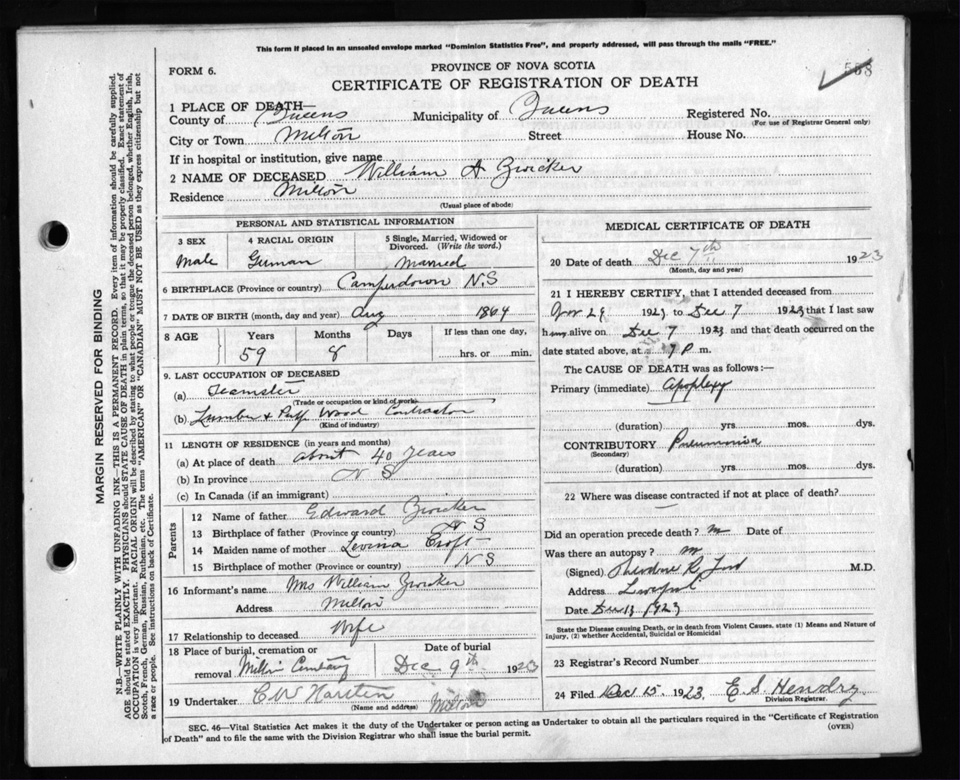 This form if placed in an unsealed envelope marked "Dominion Statistics Free", and properly addressed, will pass through the mails "FREE."
FORM 6.
PROVINCE OF NOVA SCOTIA
558
CERTIFICATE OF REGISTRATION OF DEATH
1 PLACE OF DEATH—
County of Queens Municipality of Queens Registered No.
(For use of Registrar General only)
City or Town Milton Street House No.
If in hospital or institution, give name
2 NAME OF DECEASED William A Zwicker
Residence Milton
(Usual place of abode)
PERSONAL AND STATISTICAL INFORMATION
3 SEX 4 RACIAL ORIGIN 5 Single, Married, Widowed or Divorced. (Write the word.)
Male German Married
6 BIRTHPLACE (Province or country) Camperdown N.S
7 DATE OF BIRTH (month, day and year) Aug 1864
8 AGE Years Months Days If less than one day,
59 8 hrs. or min.
9. LAST OCCUPATION OF DECEASED
(a) Teamster
(Trade or occupation or kind of work)
(b) Lumber & Pulp Wood Contractor
(Kind of industry)
11 LENGTH OF RESIDENCE (in years and months)
(a) At place of death about 40 years
(b) In province N S
(c) In Canada (if an immigrant)
Parents
12 Name of father Edward Zwicker
13 Birthplace of father (Province or country) N S
14 Maiden name of mother Levina Croft
15 Birthplace of mother (Province or country) N S
16 Informant's name Mrs William Zwicker
Address Milton
17 Relationship to deceased Wife
18 Place of burial, cremation or removal Date of burial
Milton Cemetary Dec 9th 1923
19 Undertaker C W Harten Milton
(Name and address)
MEDICAL CERTIFICATE OF DEATH
20 Date of death Dec 7th 1923
(Month, day and year)
21 I HEREBY CERTIFY, that I attended deceased from
Nov 28 1923 to Dec 7 1923 that I last saw
him alive on Dec 7 1923 and that death occurred on the
date stated above, at 7 P m.
The CAUSE OF DEATH was as follows:—
Primary (immediate) Apoplexy
(duration) yrs. mos. dys.
CONTRIBUTORY Pneumonia
(Secondary)
(duration) yrs. mos. dys.
22 Where was disease contracted if not at place of death?
Did an operation precede death? no Date of
Was there an autopsy? no
(Signed) Theodore R Ford M.D.
Address Liverpool
Date Dec 13 1923
State the Disease causing Death, or in death from Violent Causes, state (1) Means and Nature of Injury, (2) whether Accidental, Suicidal or Homicidal
23 Registrar's Record Number
24 Filed Dec 15, 1923, E. S. Hendry
Division Registrar.
SEC. 46—Vital Statistics Act makes it the duty of the Undertaker or person acting as Undertaker to obtain all the particulars required in the "Certificate of Registration
of Death" and to file the same with the Division Registrar who shall issue the burial permit. (OVER)
MARGIN RESERVED FOR BINDING
N.B.—WRITE PLAINLY WITH UNFADING INK—THIS IS A PERMANENT RECORD. Every item of information should be carefully supplied.
AGE should be stated EXACTLY. PHYSICIANS should STATE CAUSE OF DEATH in plain terms, so that it may be properly classified. Exact statement of
OCCUPATION is very important. RACIAL ORIGIN will be described by stating to what people or tongue the deceased person belonged, whether English, Irish,
Scotch, French, German, Russian, Ruthenian, etc. The terms "AMERICAN" OR "CANADIAN" MUST NOT BE USED as they express citizenship but not
a race or people. See instructions on back of Certificate.